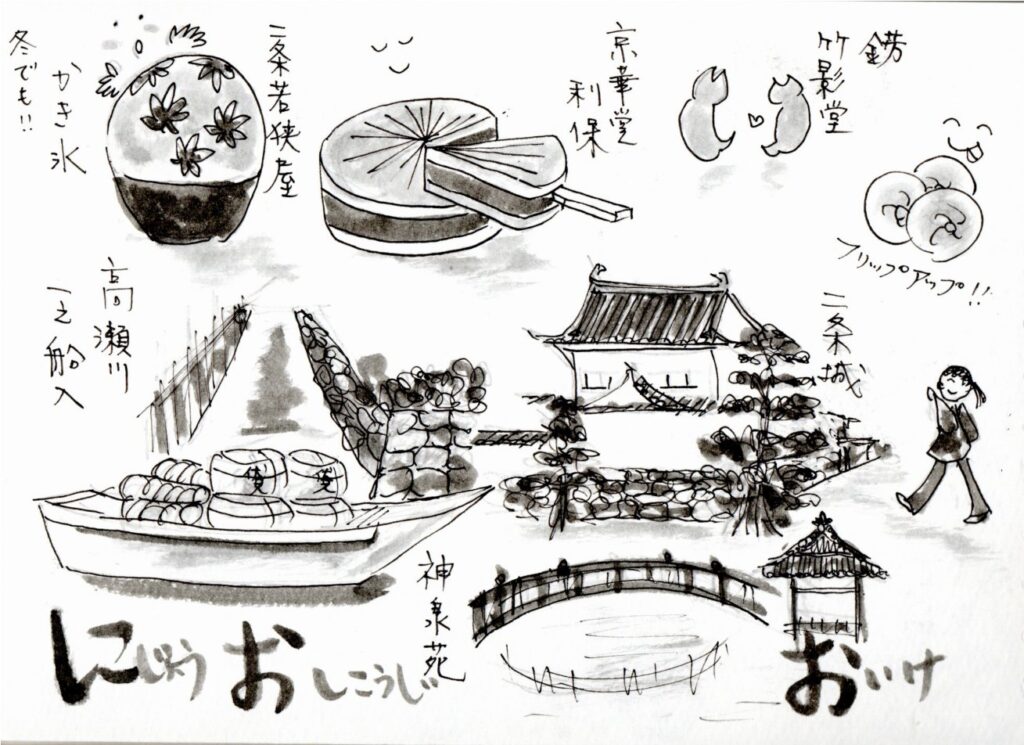 錺
竹影堂
京華堂
利保
二条若狭屋
かき氷
冬でも!!
フリップアップ!!
二条城
高瀬川
一之船入
神泉苑
にじょう おしこうじ おいけ